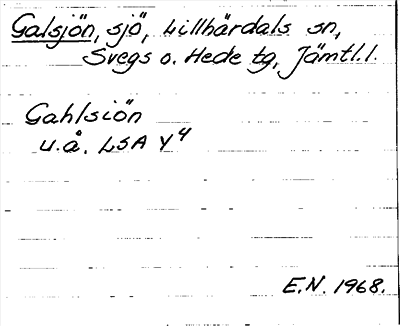 Galsjön, sjö, Lillhärdals sn,
Svegs o. Hede tg, Jämtl.l.
Gahlsiön
u.å. LSA Y4
E.N. 1968.